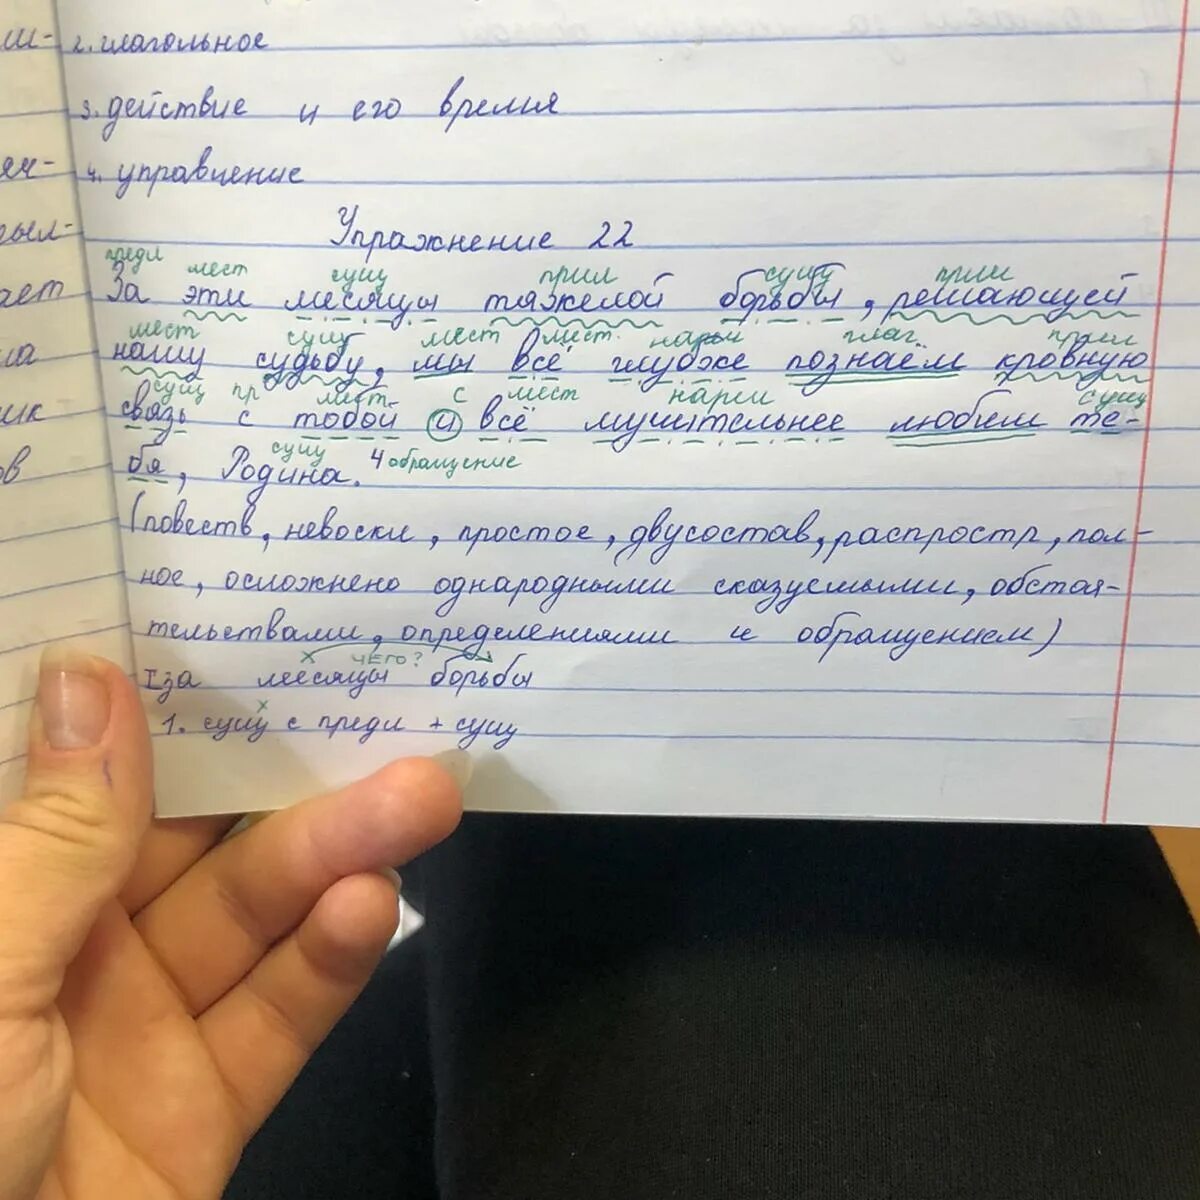 ш- 2. глагольное
3. действие и его время
ен- 4. управление
рыл-
Упражнение 22
предл мест сущ прил сущ прил
ает За эти месяцы тяжелой борьбы, решающей
мест сущ мест мест. нареч глаг. прил
на нашу судьбу, мы всё глубже познаём кровную
сущ пр мест. с мест нареч сущ
ик связь с тобой и всё мучительнее любим те-
сущ 4 обращение
ов бя, Родина.
(повеств, невоскл, простое, двусостав, распростр, пол-
ное, осложнено однородными сказуемыми, обстоя-
тельствами, определениями и обращением)
х чего?
I за месяцы борьбы
х
1. сущ с предл + сущ